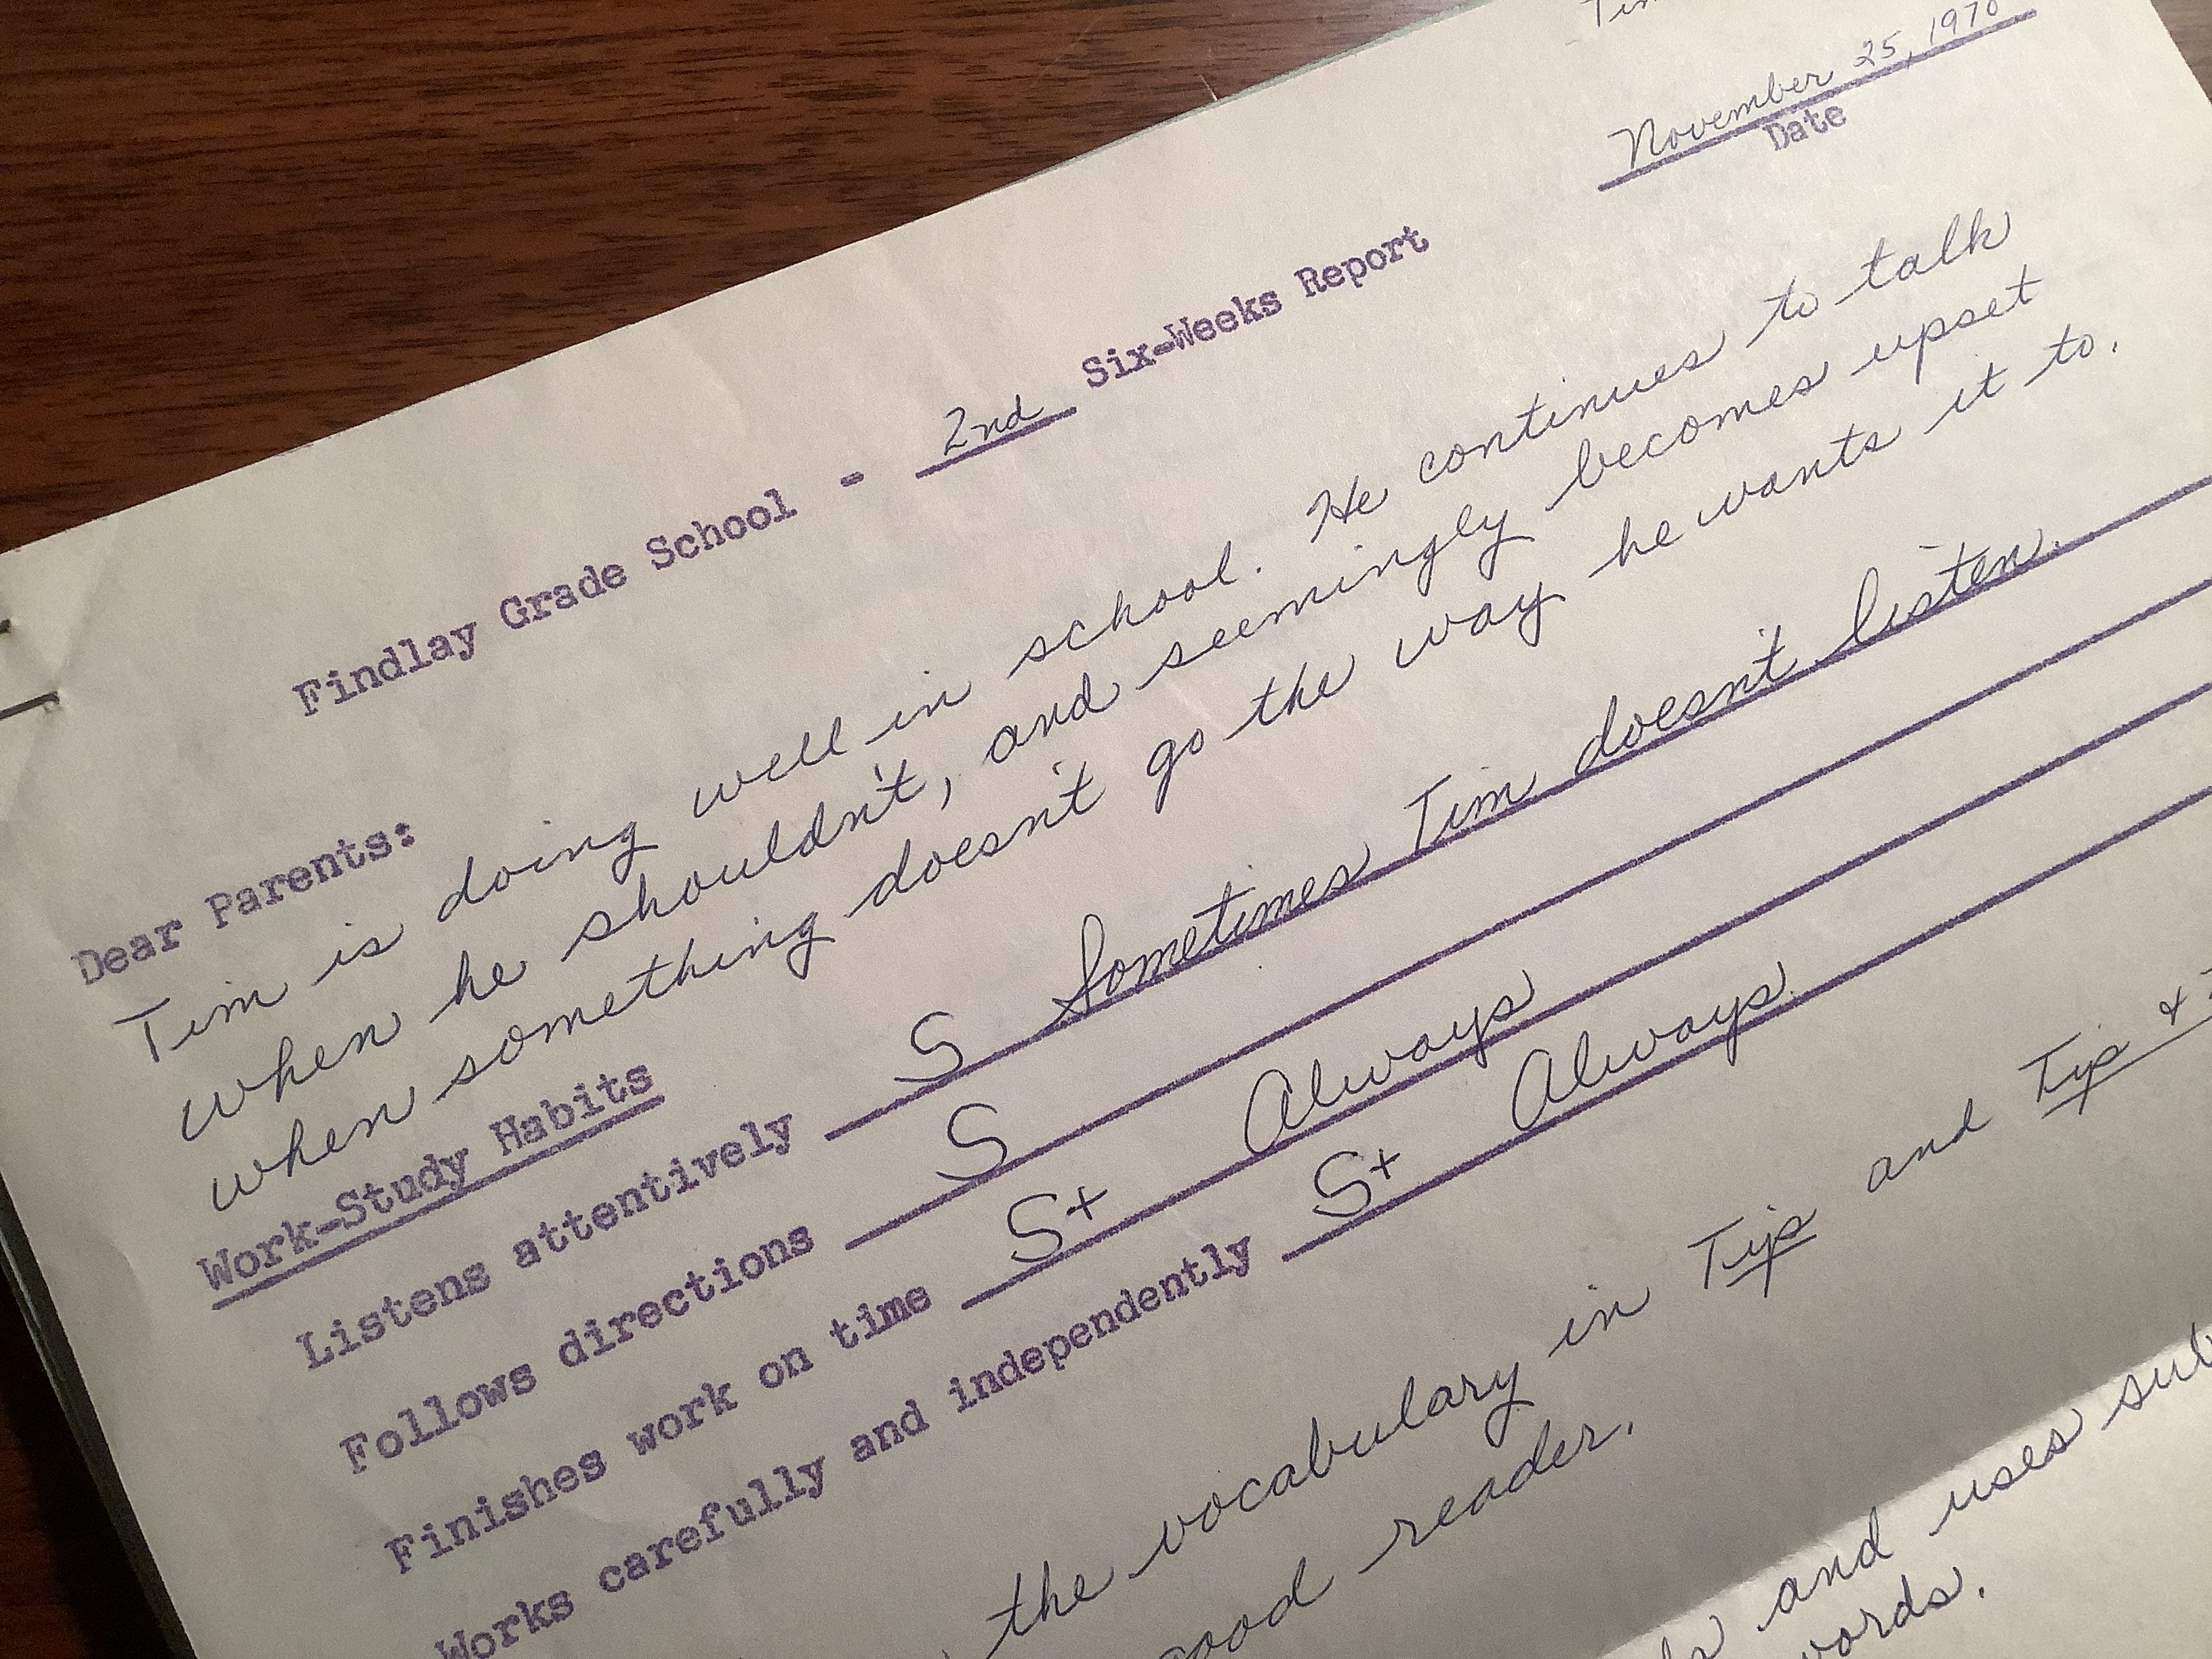 November 25, 1970
Date
Findlay Grade School - 2nd Six-Weeks Report
Dear Parents:
Tim is doing well in school. He continues to talk
when he shouldn't, and seemingly becomes upset
when something doesn't go the way he wants it to.
Work-Study Habits
Listens attentively S Sometimes Tim doesn't listen.
Follows directions S
Finishes work on time S+ Always
Works carefully and independently S+ Always.
the vocabulary in Tip and Tip &
good reader.
and uses
words.